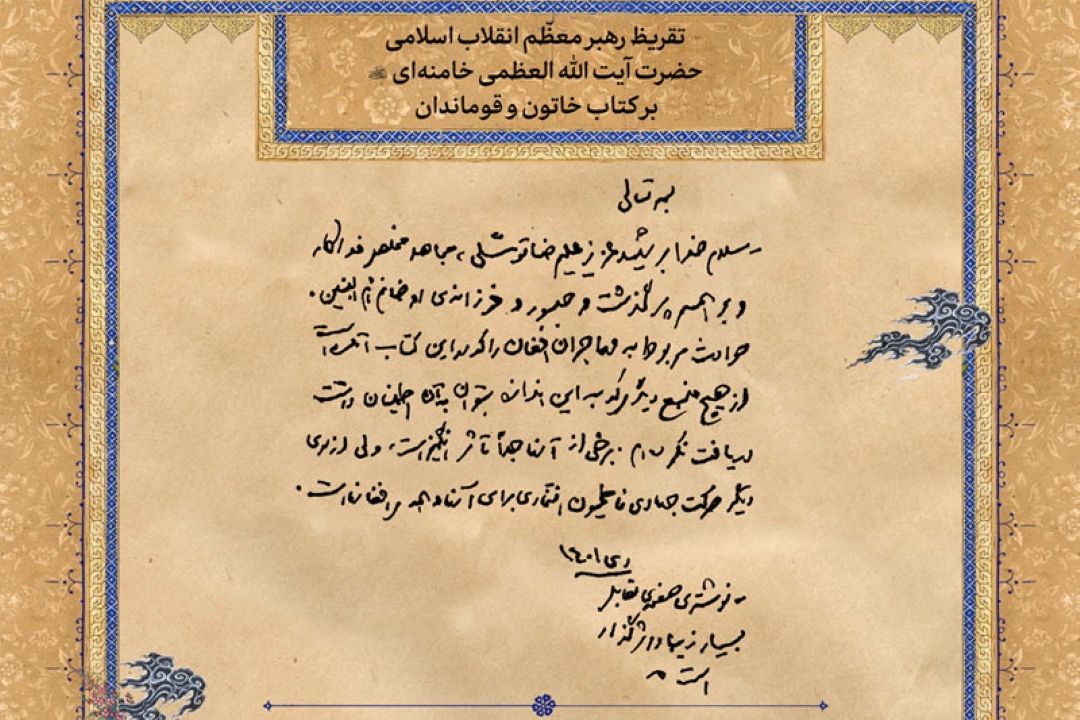 تقریظ رهبر معظّم انقلاب اسلامی
حضرت آیت الله العظمی خامنه‌ای
بر کتاب خاتون و قوماندان
بسمه تعالی
- سلام خدا بر شهید عزیز علیرضا توسّلی، مجاهد مخلص فداکار
و بر همسر پرگذشت و صبور و فرزانه‌ی او خانم امّ البنین.
حوادث مربوط به مهاجران افغان را که در این کتاب آمده است
از هیچ منبع دیگری که به این اندازه بتوان به آن اطمینان داشت
دریافت نکرده‌ام. برخی از آنها جداً تأثرانگیز است، ولی از سوی
دیگر حرکت جهادی فاطمیون افتخاری برای آنها و همه‌ی افغانها است.
دی ۱۴۰۱
- نوشته‌ی صفحه‌ی مقابل
بسیار زیبا و اثرگذار
است